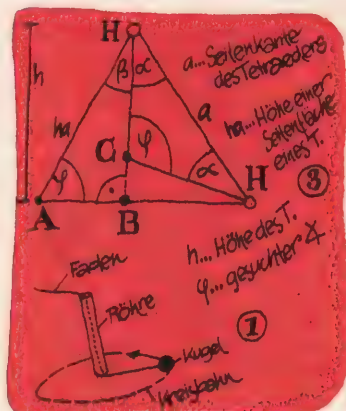 H
h
β α
a... Seitenkante
des Tetraeders
ha
a
ha... Höhe einer
Seitenfläche
eines T.
C
φ
φ
α
H
③
A
B
h... Höhe des T.
φ... gesuchter ∡
Faden
Röhre
①
Kugel
Kreisbahn